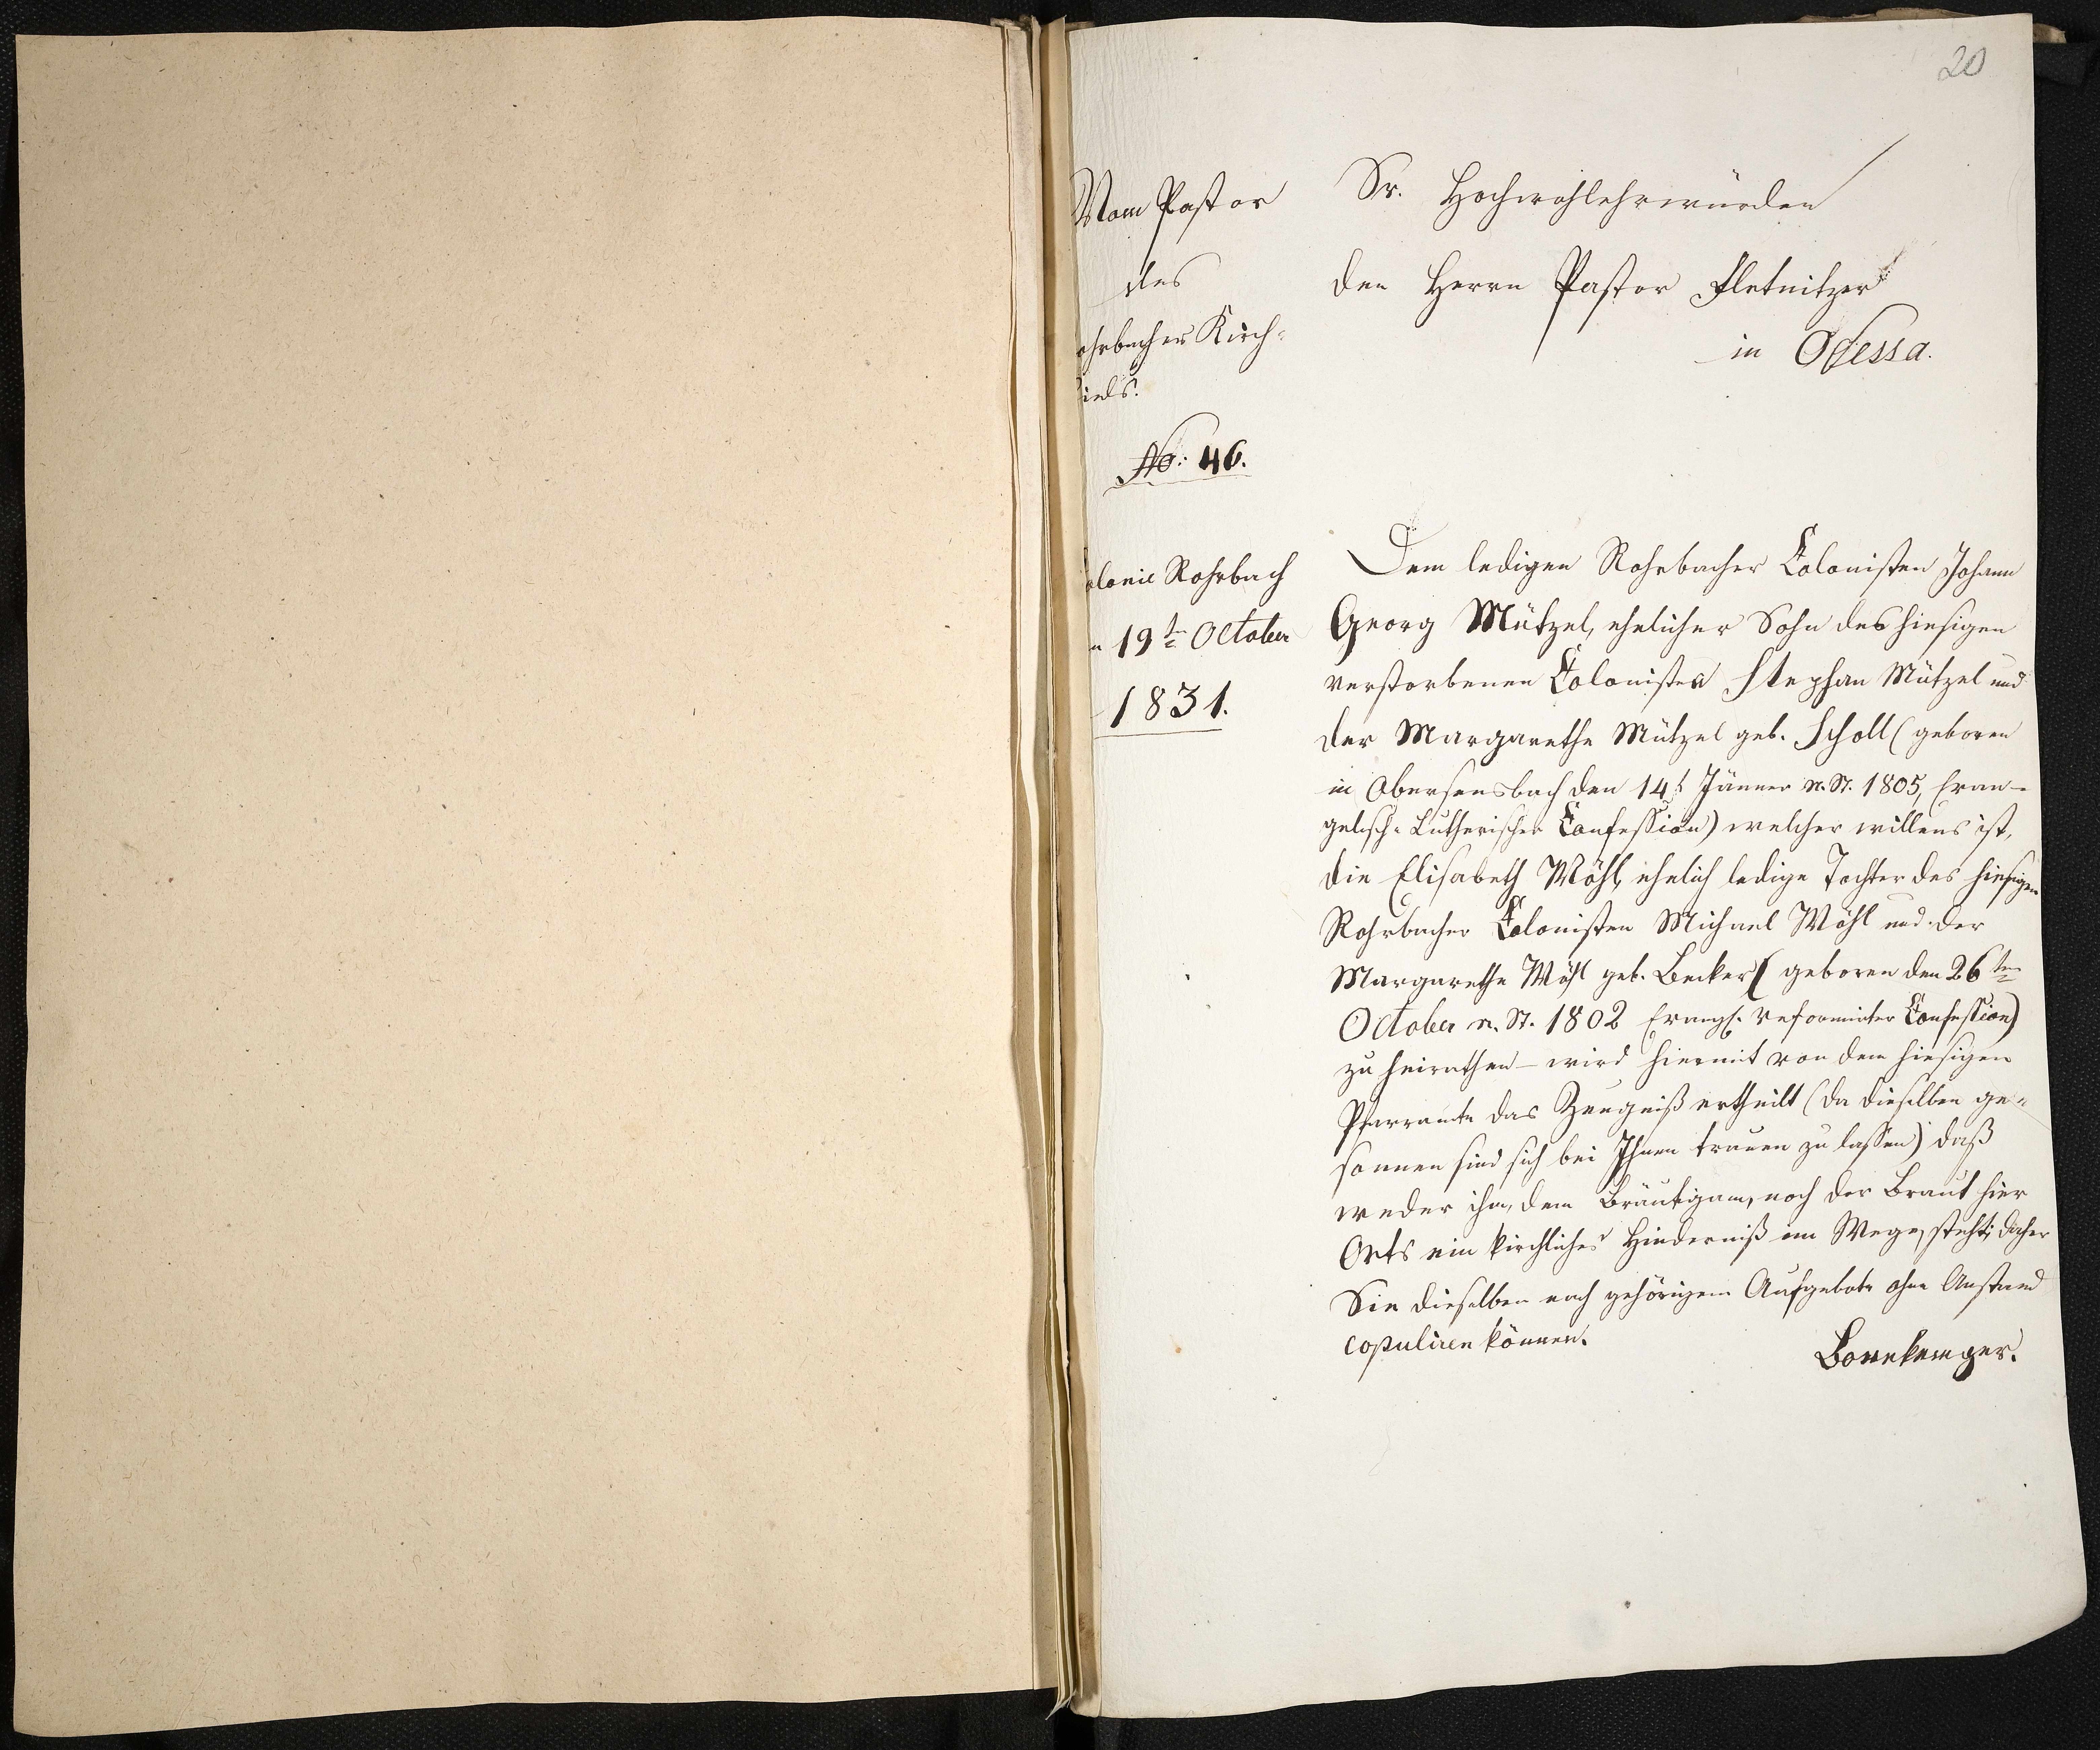 20
Vom Pastor
des
ohrbacher Kirch-
iels.
No: 46.
olonie Rohrbach
n 19t October
1831.
Sr. Hochwohlehrwürden
den Herrn Pastor Fletnitzer
in Odessa.
Dem ledigen Rohrbacher Colonisten Johann
Georg Mützel, ehelicher Sohn des hiesigen
verstorbenen Colonisten Stephan Mützel und
der Margarethe Mützel geb. Scholl (geboren
in Obersensbach den 14t Jänner n. St. 1805, Evan-
gelisch-Lutherischer Confession) welcher willens ist,
die Elisabeth Wöhl, ehelich ledige Tochter des hiesigen
Rohrbacher Colonisten Michael Wöhl und der
Margarethe Wöhl geb. Becker (geboren den 26ten
October n. St. 1802 Evangl. reformirter Confession)
zu heirathen – wird hiermit von dem hiesigen
Pfarramte das Zeugniß ertheilt (da dieselben ge-
sonnen sind sich bei Ihnen trauen zu lassen) daß
weder ihm, dem Bräutigam, noch der Braut hier
Orts ein kirchliches Hinderniß im Wege steht; daher
Sie dieselben nach gehörigem Aufgebote ohne Anstand
copuliren können.
Bonekemper.